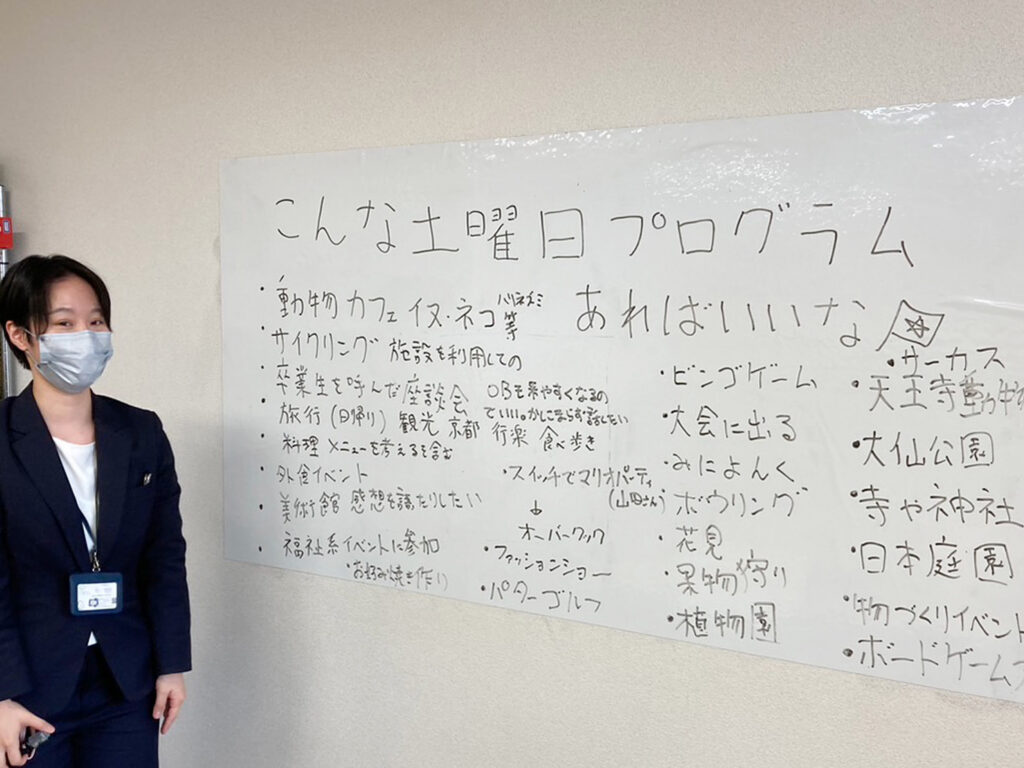 こんな土曜日プログラム
あればいいな
・動物カフェ イヌ・ネコ ハリネズミ等
・サイクリング 施設を利用しての
・卒業生を呼んだ座談会 OBも来やすくなるの
でいい。かしこまらず話したい
・旅行(日帰り) 観光 京都 行楽 食べ歩き
・料理 メニューを考えるを含む
・外食イベント
・美術館 感想を語たりしたい
・福祉系イベントに参加
・お好み焼き作り
・スイッチでマリオパーティ
(山田さん)
↓
オーバークック
・ファッションショー
・パターゴルフ
・ビンゴゲーム
・大会に出る
・みによんく
・ボウリング
・花見
・果物狩り
・植物園
・サーカス
・天王寺動物
・大仙公園
・寺や神社
・日本庭園
・物づくりイベント
・ボードゲーム